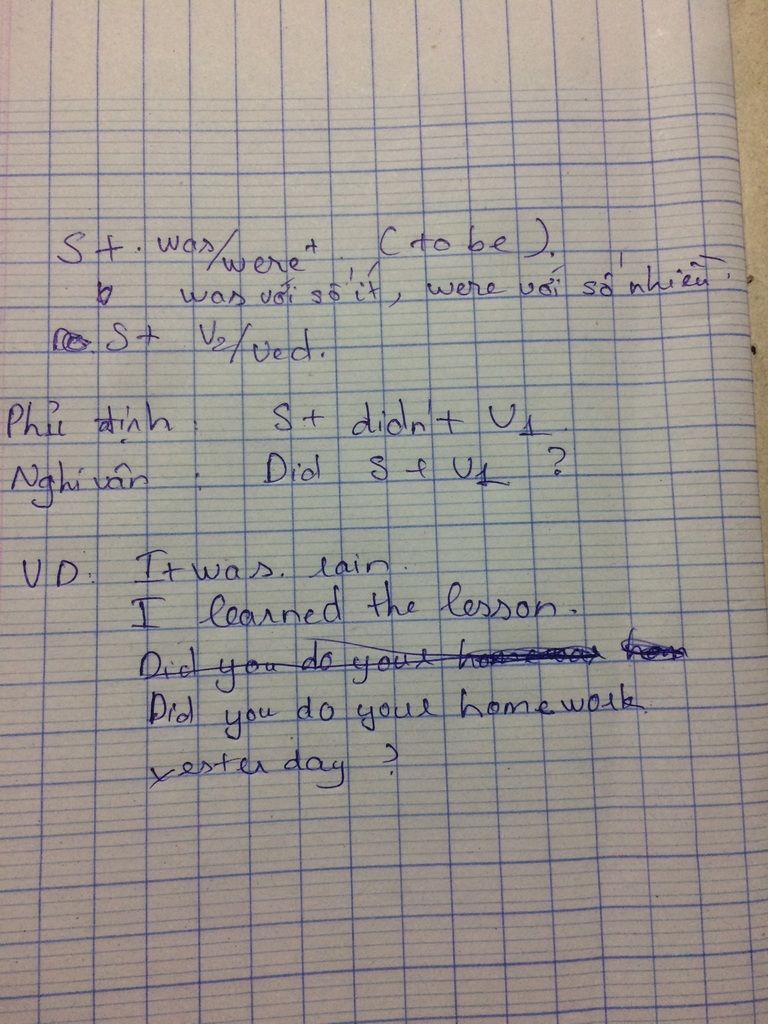 S + . was/were + (to be).
was với số ít, were với số nhiều.
S + V2/Ved.
Phủ định : S + didn't + V1
Nghi vấn : Did S + V1 ?
VD: It was. rain.
I learned the lesson.
Did you do your
Did you do your homework
yesterday ?